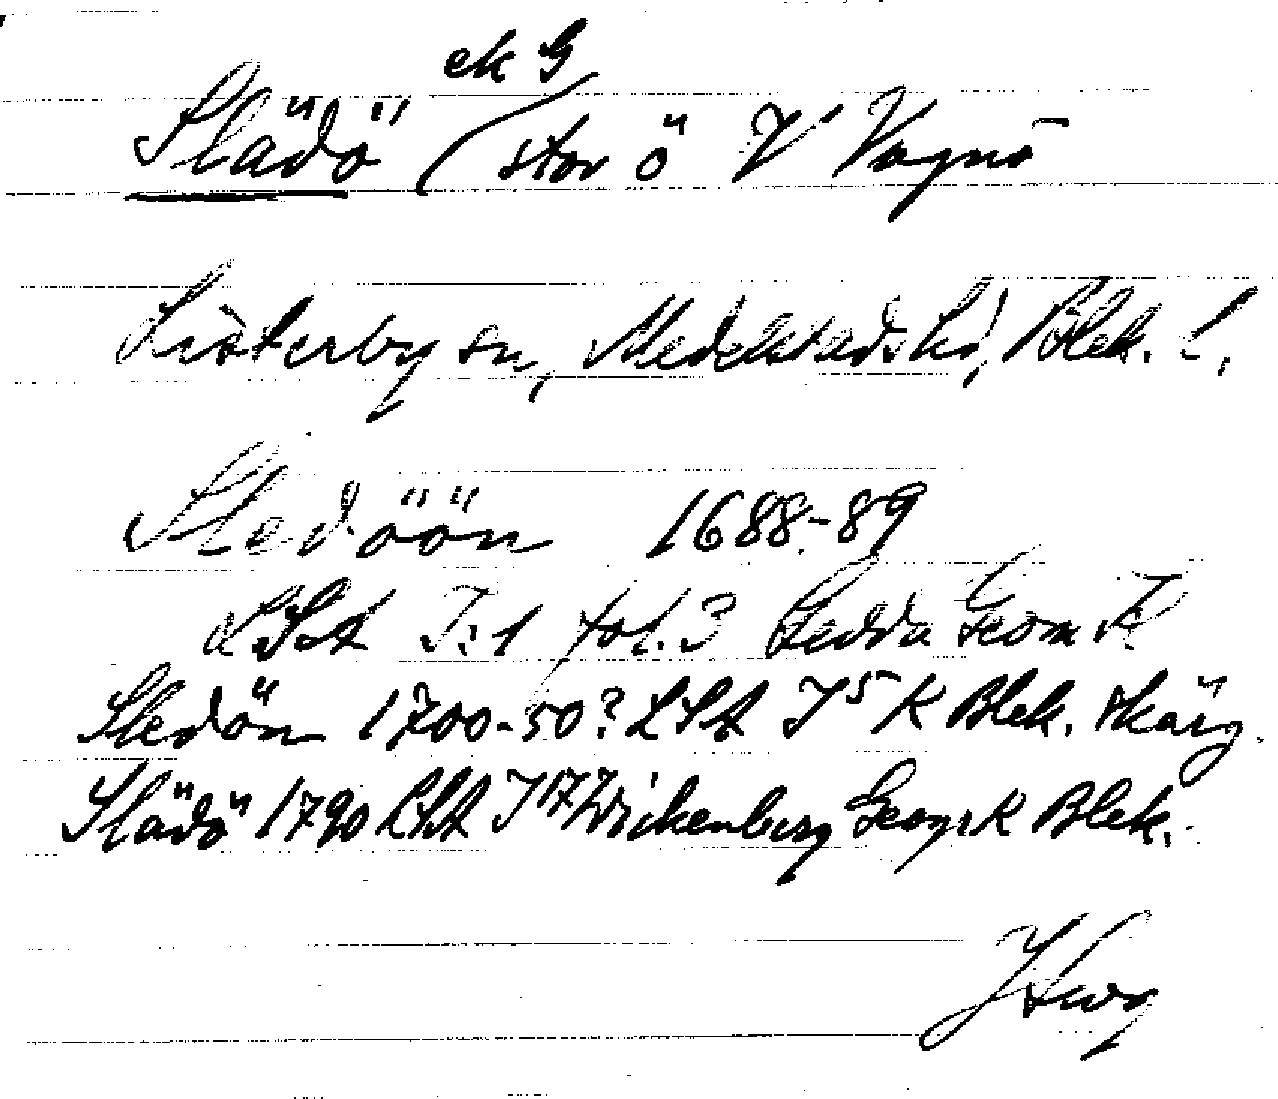 ek G
Slädö / stor ö V Vagnö
Listerby sn, Medelstads hd, Blek. l.
Sledöön 1688-89
LSA I:1 fol. 3 Gedda Geom K
Sledön 1700-50? LSA I5 K Blek. skärg.
Slädö 1790 LSA I17 Wickenberg Geogr K Blek.